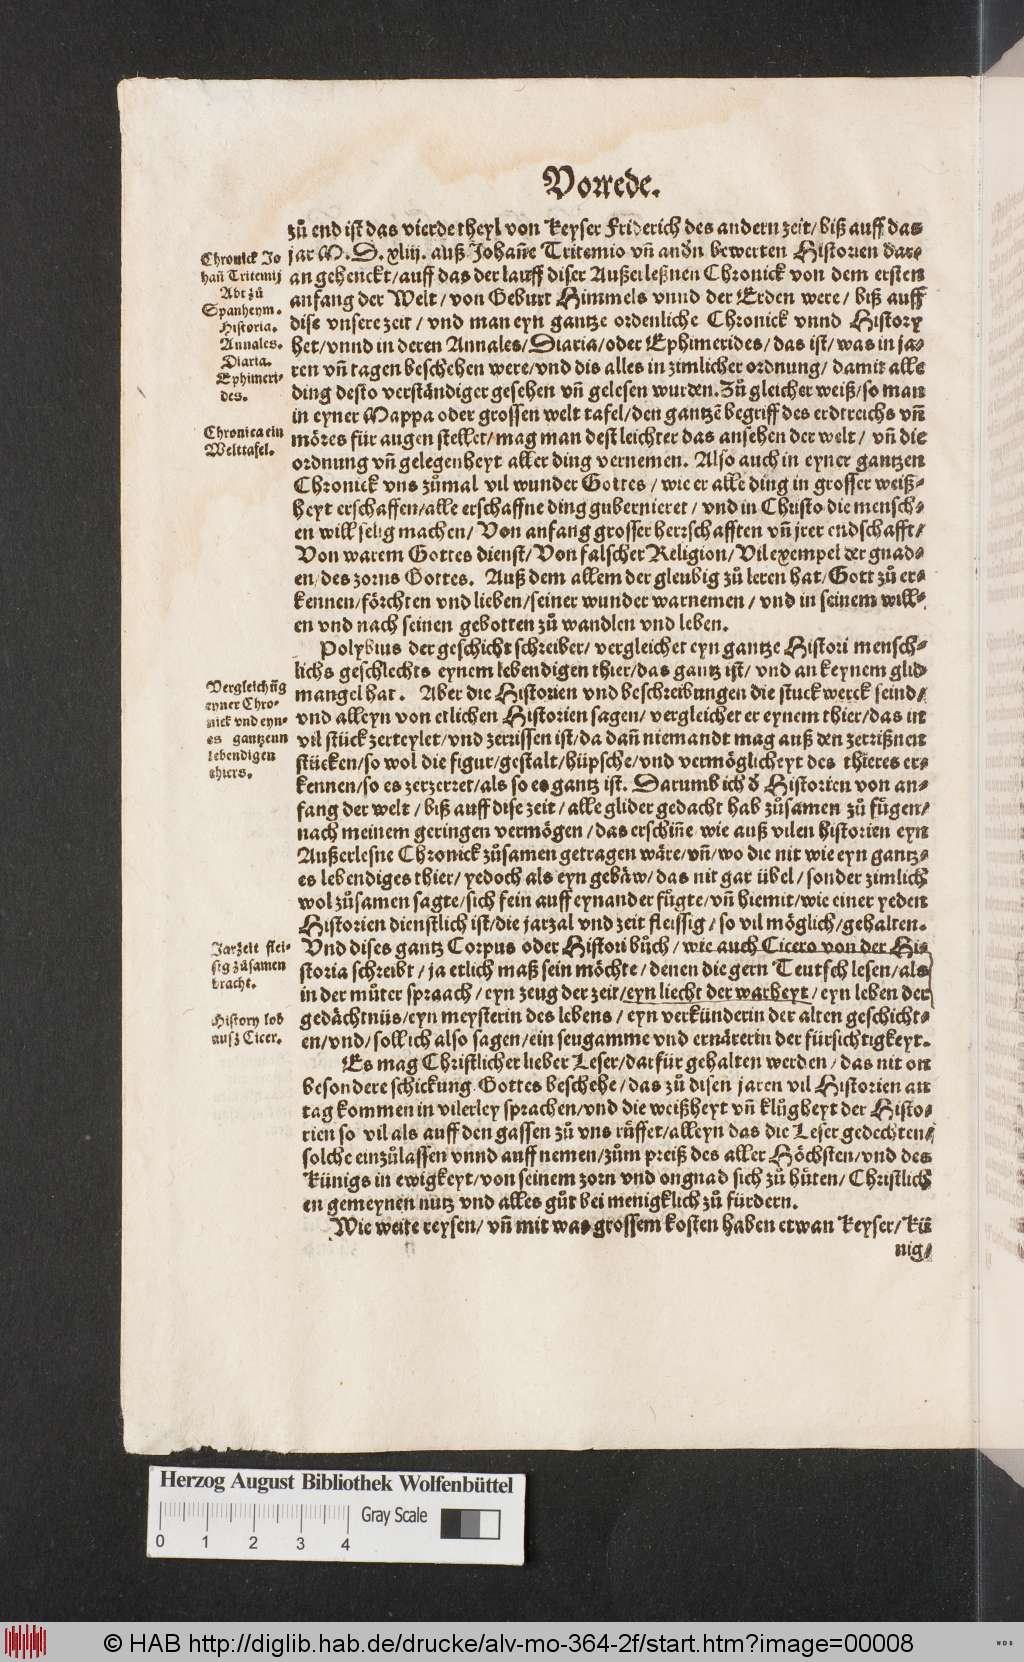 Vorrede.
zů end ist das vierde theyl von Keyser Friderich des andern zeit/ biß auff das
jar M. D. xliiij. auß Johañe Tritemio vñ andn bewerten Historien dar⸗
an gehenckt/ auff das der lauff diser Außerleßnen Chronick von dem ersten
anfang der Welt/ von Geburt Himmels vnnd der Erden were/ biß auff
dise vnsere zeit/ vnd man eyn gantze ordenliche Chronick vnnd History
het/ vnnd in deren Annales/ Diaria/ oder Ephimerides/ das ist/ was in ja⸗
ren vñ tagen beschehen were/ vnd dis alles in zimlicher ordnung/ damit alle
ding desto verständiger gesehen vñ gelesen wurden. Zů gleicher weiß/ so man
in eyner Mappa oder grossen welt tafel/ den gantzẽ begriff des erdtreichs vñ
möres für augen stellet/ mag man dest leichter das ansehen der welt/ vñ die
ordnung vñ gelegenheyt aller ding vernemen. Also auch in eyner gantzen
Chronick vns zůmal vil wunder Gottes/ wie er alle ding in grosser weiß⸗
heyt erschaffen/ alle erschaffne ding gubernieret/ vnd in Christo die mensch⸗
en will selig machen/ Von anfang grosser herrschafften vñ jrer endschafft/
Von warem Gottes dienst/ Von falscher Religion/ Vil exempel der gnad⸗
en/ des zorns Gottes. Auß dem allem der gleubig zů leren hat/ Gott zů er⸗
kennen/ förchten vnd lieben/ seiner wunder warnemen/ vnd in seinem will⸗
en vnd nach seinen gebotten zů wandlen vnd leben.
Polybius der geschicht schreiber/ vergleichet eyn gantze Histori mensch⸗
lichs geschlechts eynem lebendigen thier/ das gantz ist/ vnd an keynem glid
mangel hat. Aber die Historien vnd beschreibungen die stuckwerck seind/
vnd alleyn von etlichen Historien sagen/ vergleichet er eynem thier/ das in
vil stück zerteylet/ vnd zerrissen ist/ da dañ niemandt mag auß den zerrißnen
stücken/ so wol die figur/ gestalt/ hüpsche/ vnd vermöglicheyt des thieres er⸗
kennen/ so es zerzerret/ als so es gantz ist. Darumb ich d Historien von an⸗
fang der welt/ biß auff dise zeit/ alle glider gedacht hab zůsamen zů fůgen/
nach meinem geringen vermögen/ das erschiñe wie auß vilen historien eyn
Außerlesne Chronick zůsamen getragen wäre/ vñ/ wo die nit wie eyn gantz⸗
es lebendiges thier/ yedoch als eyn gebäw/ das nit gar übel/ sonder zimlich
wol zůsamen sagte/ sich fein auff eynander fůgte/ vñ hiemit/ wie einer yeden
Historien dienstlich ist/ die jarzal vnd zeit fleissig/ so vil möglich/ gehalten.
Vnd dises gantz Corpus oder Histori bůch/ wie auch Cicero von der His
storia schreibt/ ja etlich maß sein möchte/ denen die gern Teutsch lesen/ als
in der můter spraach/ eyn zeug der zeit/ eyn liecht der warheyt/ eyn leben der
gedächtnüs/ eyn meysterin des lebens/ eyn verkünderin der alten geschicht⸗
en/ vnd/ soll ich also sagen/ ein seugamme vnd ernärerin der fürsichtigkeyt.
Es mag Christlicher lieber Leser/ darfür gehalten werden/ das nit on
besondere schickung Gottes beschehe/ das zů disen jaren vil Historien an
tag kommen in vilerley sprachen/ vnd die weißheyt vñ klůgheyt der Histo⸗
rien so vil als auff den gassen zů vns růffet/ alleyn das die Leser gedechten/
solche einzůlassen vnnd auff nemen/ zům preiß des aller Höchsten/ vnd des
Künigs in ewigkeyt/ von seinem zorn vnd ongnad sich zů hüten/ Christlich
en gemeynen nutz vnd alles gůt bei menigklich zů fürdern.
Wie weite reysen/ vñ mit was grossem kosten haben etwan Keyser/ Kü
nig⸗
Chronick Jo
hañ Tritemij
Abt zů
Spanheym.
Historia.
Annales.
Diaria.
Ephimeri⸗
des.
Chronica ein
Welttafel.
Vergleichũg
eyner Chro⸗
nick vnd eyn⸗
es gantzenn
lebendigen
thiers.
Jarzeit flei⸗
sig zůsamen
bracht.
History lob
ausz Cicer.
Herzog August Bibliothek Wolfenbüttel
Gray Scale
0 1 2 3 4
© HAB http://diglib.hab.de/drucke/alv-mo-364-2f/start.htm?image=00008